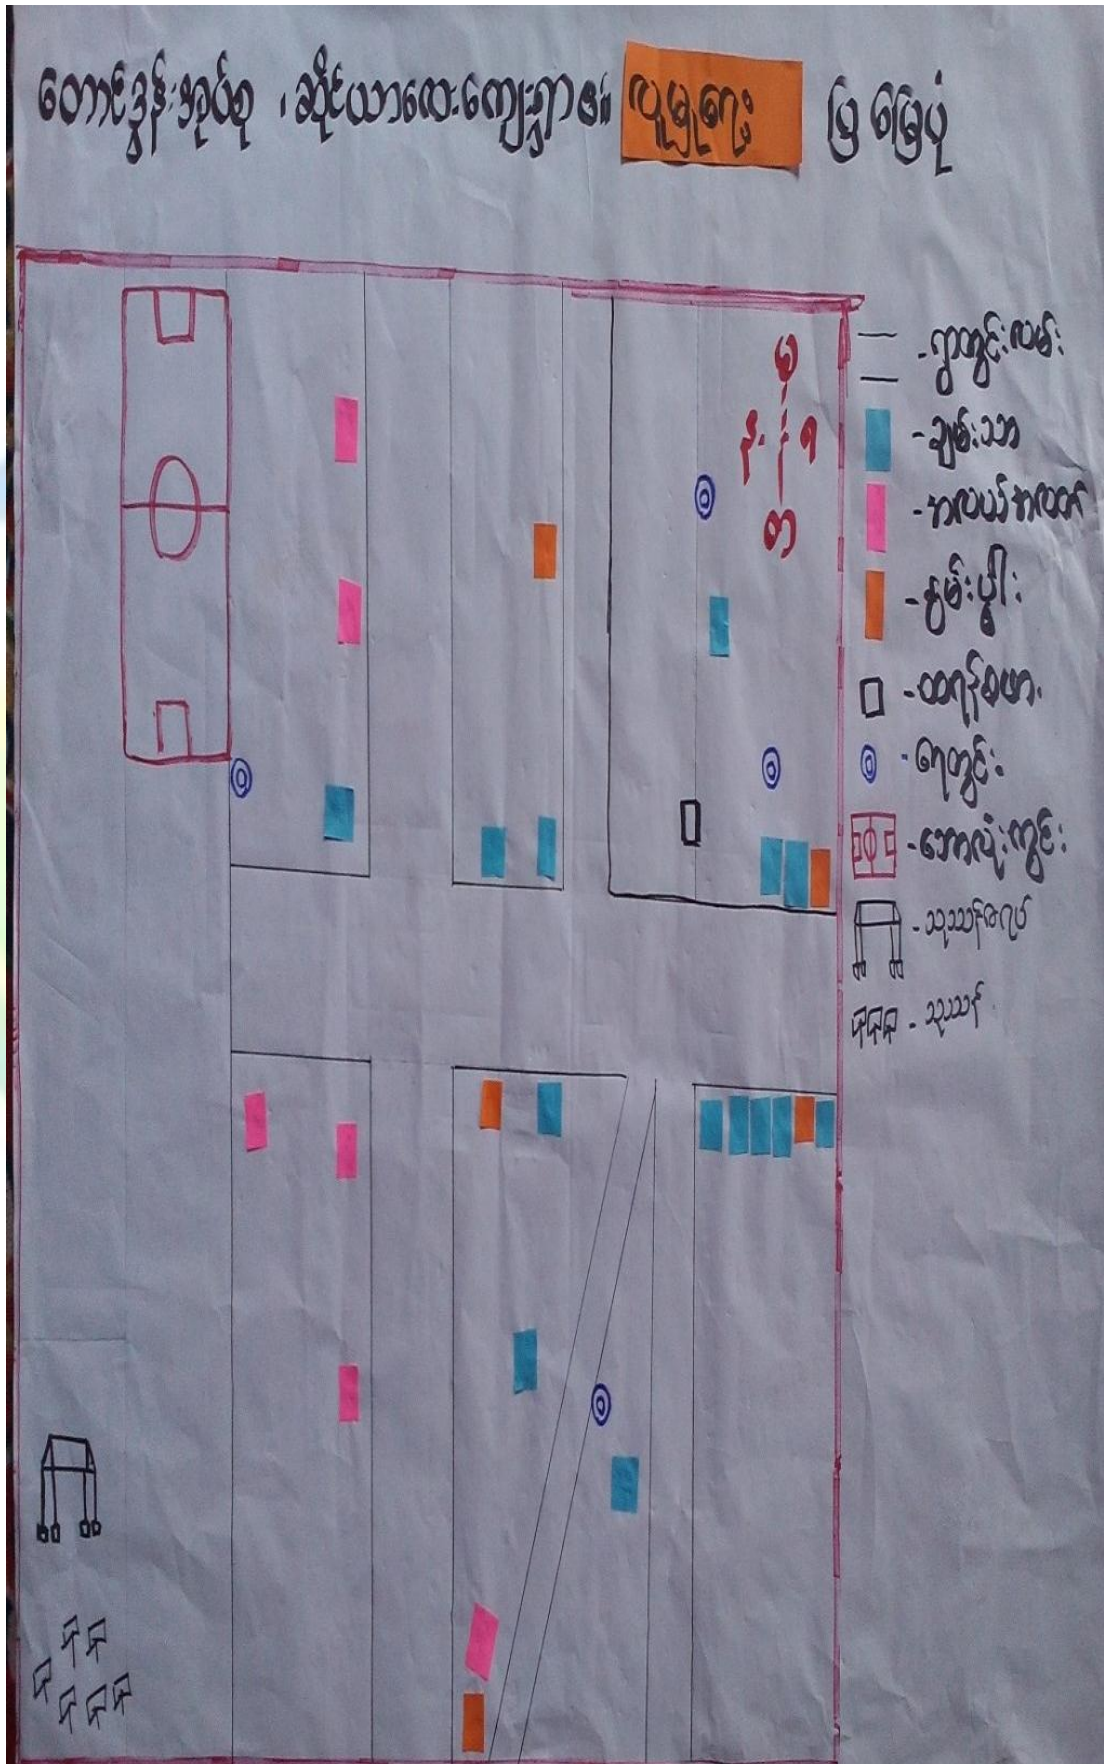 တောင်ဒွန်းအုပ်စု ၊ ဆိုင်ယာလေးကျေးရွာ၏ လူမှုရေး ပြ မြေပုံ
- ရွာတွင်းလမ်း
- ချမ်းသာ
- အလယ်အလတ်
- နွမ်းပါး
- ထရန်စဖာ
- ရေတွင်း
- ဘောလုံးကွင်း
- သုဿန်ဇရပ်
- သုဿန်